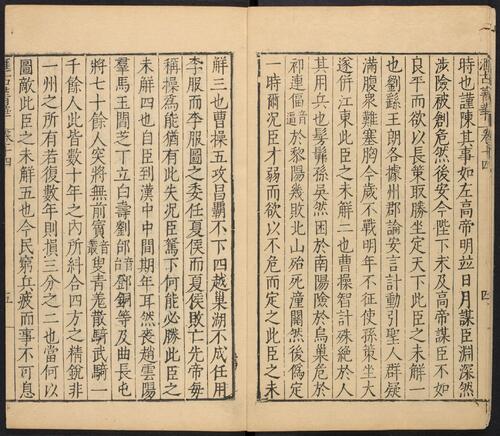 卷十四 四
時也謹陳其事如左高帝明竝日月謀臣淵深然
涉險被創危然後安今陛下未及高帝謀臣不如
良平而欲以長策取勝坐定天下此臣之未解一
也劉繇王朗各據州郡論安言計動引聖人群疑
滿腹衆難塞胸今歲不戰明年不征使孫策坐大
遂併江東此臣之未解二也曹操智計殊絶於人
其用兵也髣髴孫吳然困於南陽險於烏巢危於
祁連偪音逼於黎陽幾敗北山殆死潼關然後僞定
一時爾况臣才弱而欲以不危而定之此臣之未
解三也曹操五攻昌霸不下四越巢湖不成任用
李服而李服圖之委任夏侯而夏侯敗亡先帝每
稱操爲能猶有此失况臣駑下何能必勝此臣之
未解四也自臣到漢中中間期年耳然喪趙雲陽
羣馬玉閻芝丁立白壽劉郃音合鄧銅等及曲長屯
將七十餘人突將無前賨音叢叟青羗散騎武騎一
千餘人此皆數十年之內所糾合四方之精銳非
一州之所有若復數年則損三分之二也當何以
圖敵此臣之未解五也今民窮兵疲而事不可息
五